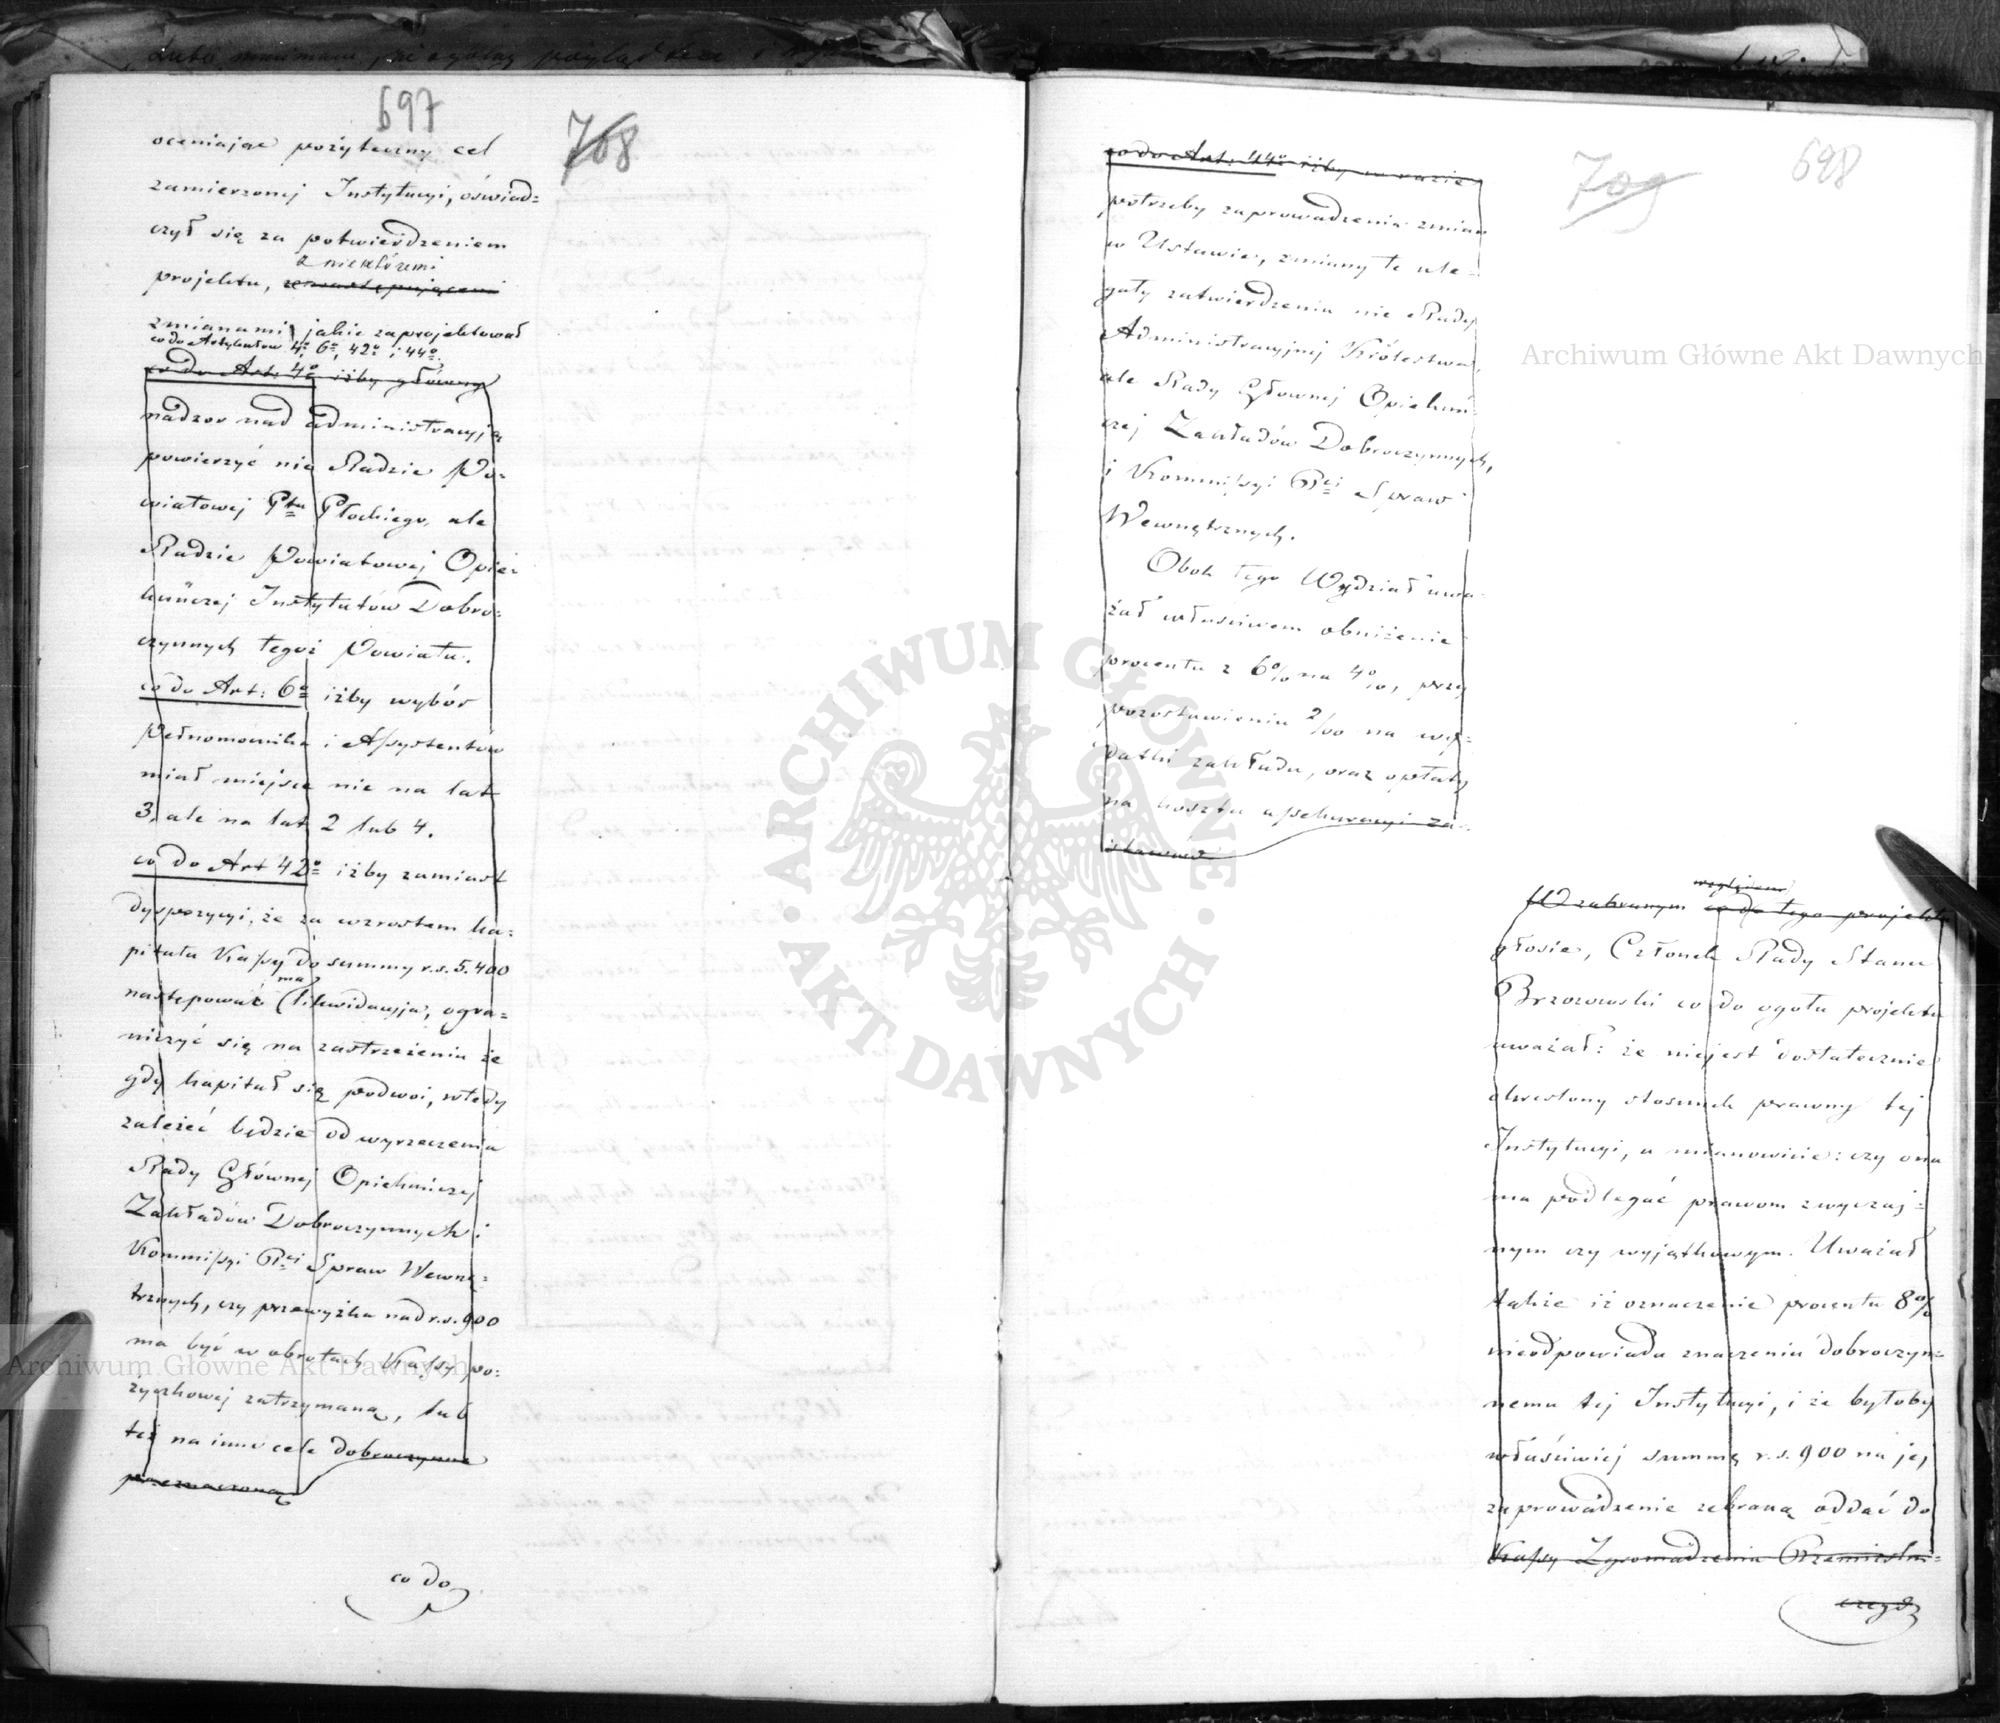 697
708
oceniając pożyteczny cel
zamierzonej Instytucyi, oświad=
czył się za potwierdzeniem
z niektóremi
projektu, ze następującemi
zmianami jakie zaprojektował
co do Artykułów 4º, 6º, 42º i 44º.
co do Art: 4º iżby główny
nadzor nad administracyją
powierzyć nie Radzie Po=
wiatowej Ptu Płockiego, ale
Radzie Powiatowej Opie=
kuńczej Instytutów Dobro=
czynnych tegoż Powiatu.
co do Art: 6º iżby wybór
Pełnomocnika i Assystentów
miał miejsce nie na lat
3, ale na lat 2 lub 4.
co do Art 42º iżby zamiast
dyspozycyi, że za wzrostem ka=
pitału Kassy do summy r.s. 5.400
ma
następować likwidacyja, ogra=
niczyć się na zastrzeżeniu że
gdy kapitał się podwoi, wtedy
zależeć będzie od wyrzeczenia
Rady Głównej Opiekuńczej
Zakładów Dobroczynnych i
Kommissyi Rei Spraw Wewnę=
trznych, czy przewyżka nad r.s. 900
ma być w obrotach Kassy po=
życzkowej zatrzymaną, lub
też na inne cele dobroczynne
przeznaczoną
co do
698
709
co do Art: 44º iżby w razie
potrzeby zaprowadzenia zmian
w Ustawie, zmiany te ule=
gały zatwierdzeniu nie Rady
Administracyjnej Królestwa,
ale Rady Głównej Opiekuń=
czej Zakładów Dobroczynnych,
i Kommissyi Rei Spraw
Wewnętrznych.
Obok tego Wydział uwa=
żał właściwem obniżenie
procentu z 6% na 4%, przy
pozostawieniu 2/00 na wy=
datki zakładu, oraz opłaty
na koszta assekuracyi za=
stawów
względem
W zabranym co do tego projektu
głosie, Członek Rady Stanu
Brzozowski co do ogółu projektu
uważał: że niejest dostatecznie
okreslony stosunek prawny tej
Instytucyi, a mianowicie: czy ona
ma podlegać prawom zwyczaj=
nym czy wyjątkowym. Uważał
także iż oznaczenie procentu 8%
nieodpowiada znaczeniu dobroczyn=
nemu tej Instytucyi, i że byłoby
właściwiej summę r.s. 900 na jej
zaprowadzenie zebraną oddać do
Kassy Zgromadzenia Rzemieslni=
czego
Archiwum Główne Akt Dawnych
Archiwum Główne Akt Dawnych
ARCHIWUM GŁÓWNE AKT DAWNYCH